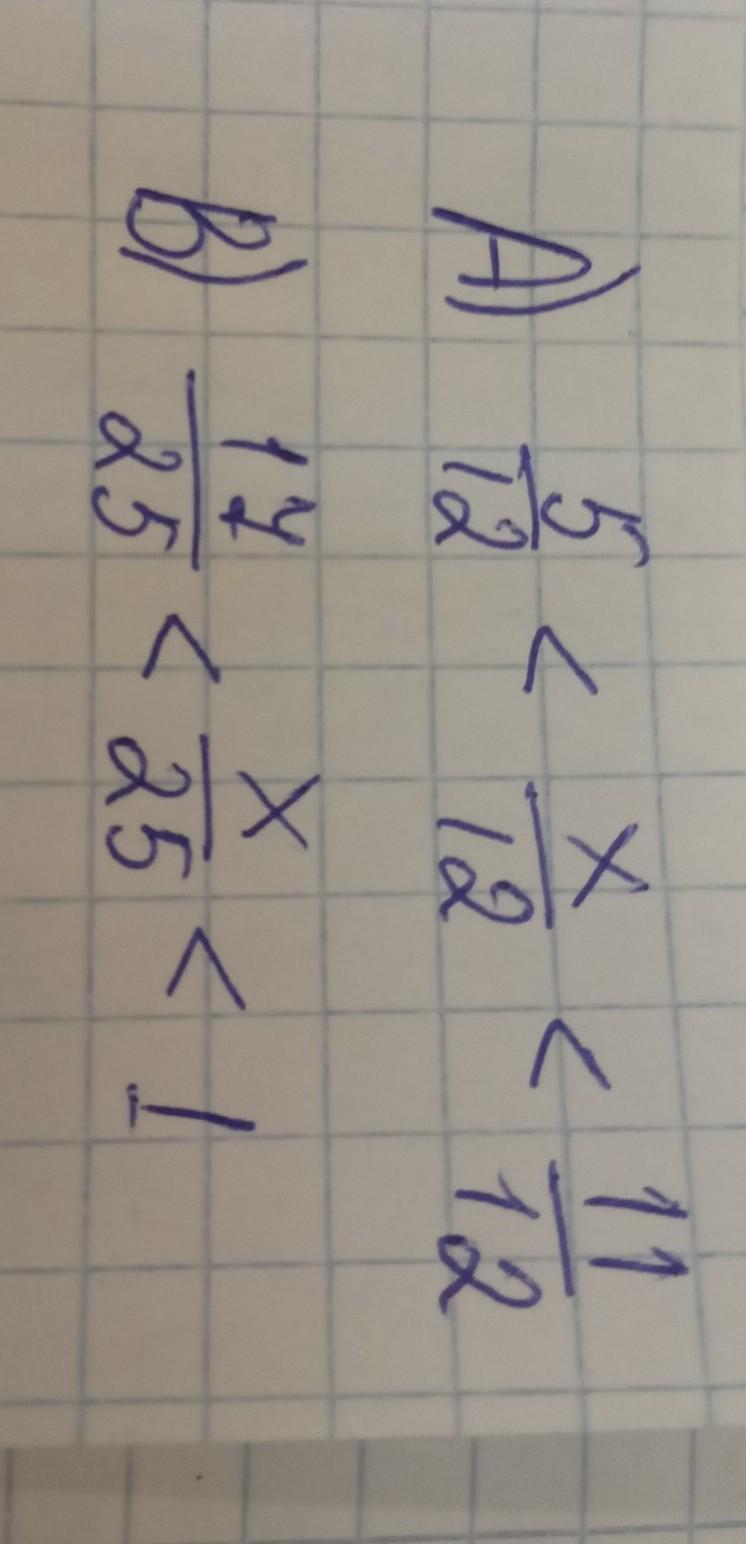 A) 5/12 < x/12 < 11/12
B) 17/25 < x/25 < 1